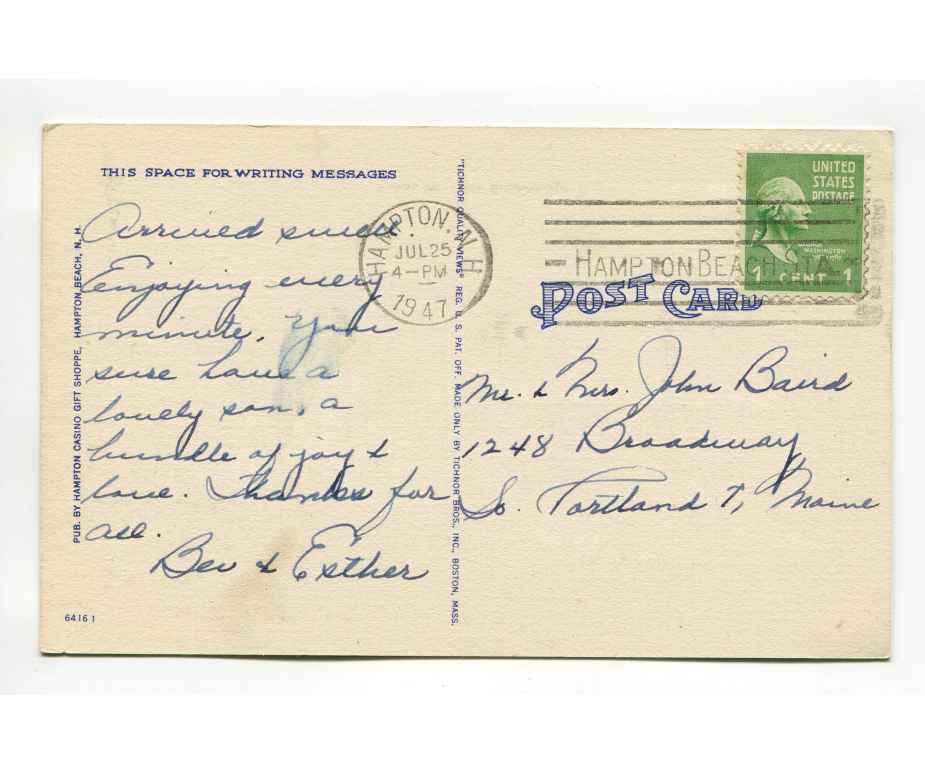 THIS SPACE FOR WRITING MESSAGES
Arrived
Enjoying every
minute. You
sure have a
lovely son, a
bundle of joy &
love. Thanks for
all.
Bev & Esther
64161
PUB. BY HAMPTON CASINO GIFT SHOPPE, HAMPTON BEACH, N. H.
"TICHNOR QUALITY VIEWS" REG. U. S. PAT. OFF. MADE ONLY BY TICHNOR BROS., INC., BOSTON, MASS.
HAMPTON, N. H.
JUL 25
4-PM
1947
UNITED
STATES
POSTAGE
WASHINGTON
1 CENT 1
HAMPTON BEACH
POST CARD
Mr. & Mrs. John Baird
1248 Broadway
So. Portland 7, Maine